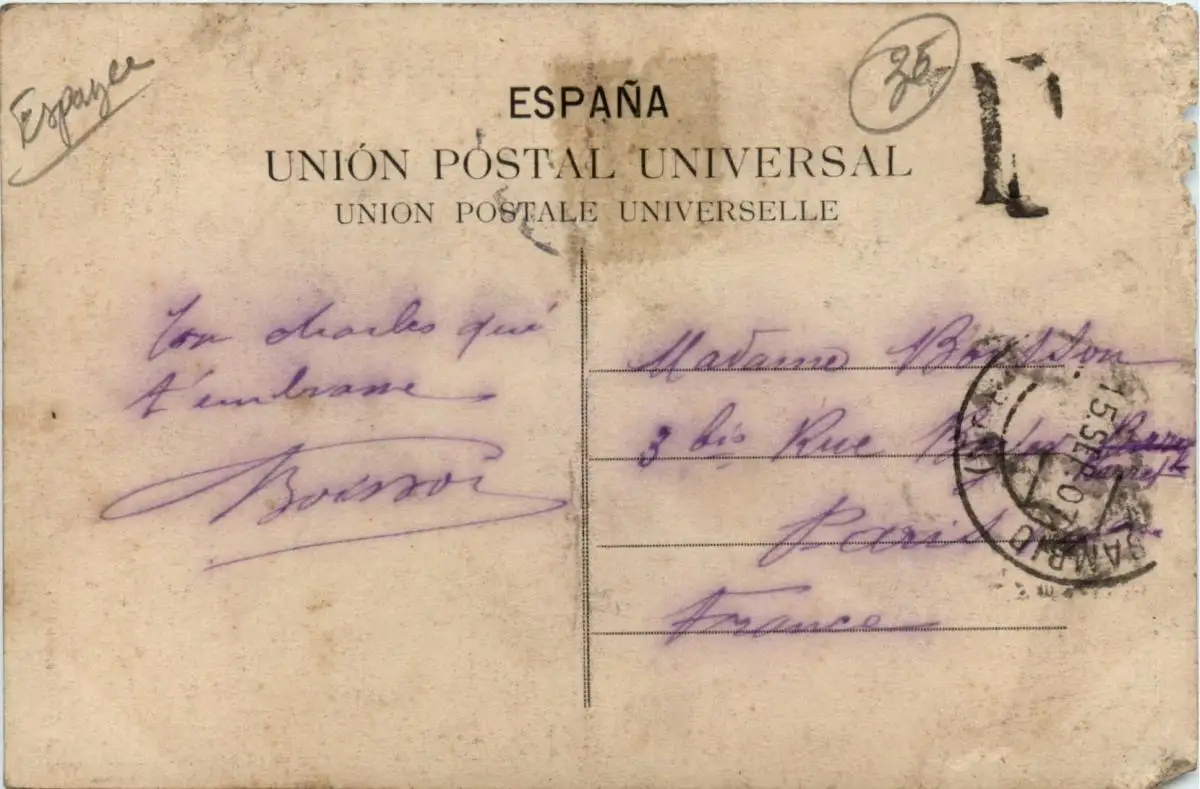 Espagne
25,-
T
ESPAÑA
UNIÓN POSTAL UNIVERSAL
UNION POSTALE UNIVERSELLE
Ton charles qui
t'embrasse
Boisson
Madame Boisson
3 bis Rue
Paris
France
15.SEP.07
CAMBIO